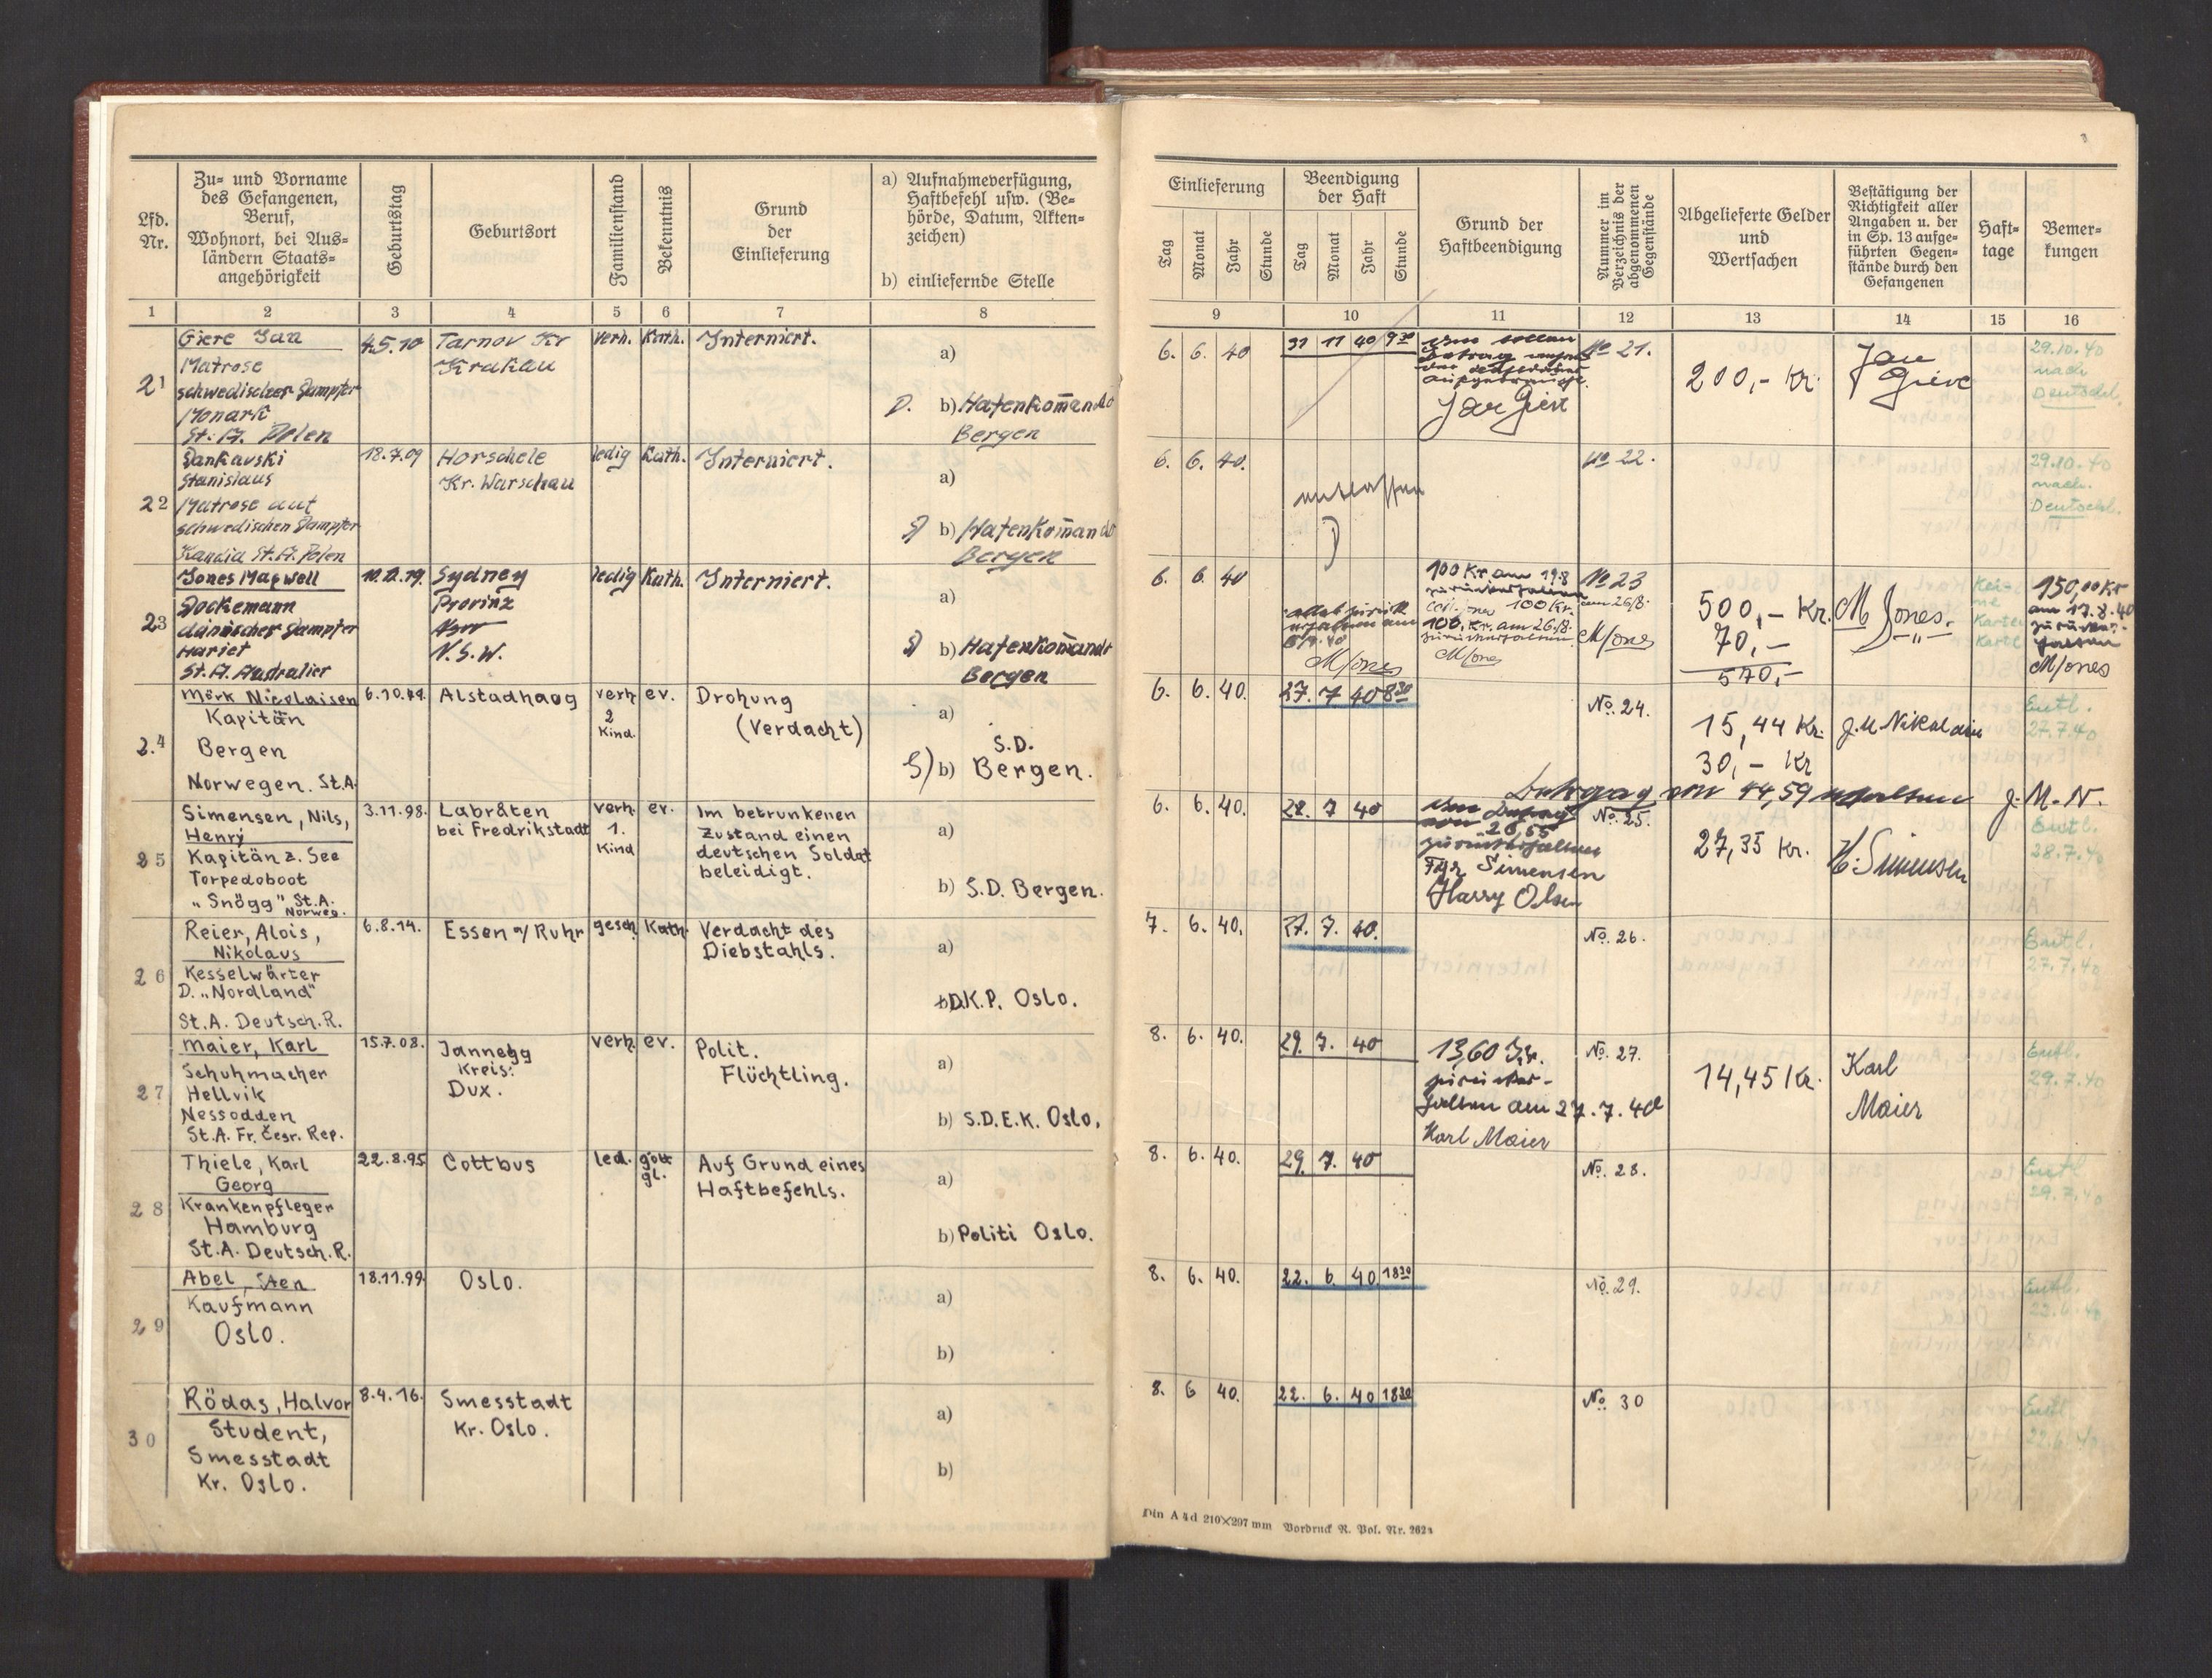 3
Lfd. Nr.
Zu= und Vorname
des Gefangenen,
Beruf,
Wohnort, bei Aus=
ländern Staats=
angehörigkeit
Geburtstag
Geburtsort
Familienstand
Bekenntnis
Grund
der
Einlieferung
a) Aufnahmeverfügung,
Haftbefehl usw. (Be=
hörde, Datum, Akten=
zeichen)
b) einliefernde Stelle
Einlieferung
Tag Monat Jahr Stunde
Beendigung
der Haft
Tag Monat Jahr Stunde
Grund der
Haftbeendigung
Nummer im
Verzeichnis der
abgenommenen
Gegenstände
Abgelieferte Gelder
und
Wertsachen
Bestätigung der
Richtigkeit aller
Angaben u. der
in Sp. 13 aufge=
führten Gegen=
stände durch den
Gefangenen
Haft=
tage
Bemer=
kungen
1 2 3 4 5 6 7 8 9 10 11 12 13 14 15 16
21
Giere Jan
Matrose
schwedischer Dampfer
Monark
St. A. Polen
4.5.10
Tarnov Kr
Krakau
verh.
Kath.
Interniert.
a)
b) Hafenkommando
Bergen
6. 6. 40
31 11 40 9 30
No 21.
200,- Kr.
Jan
Giere
29.10.40
nach
Deutschl.
22
Dankavski
Stanislaus
Matrose auf
schwedischen Dampfer
Kandia St. A. Polen
18.7.09
Horschele
Kr. Warschau
ledig
Kath.
Interniert.
a)
b) Hafenkommando
Bergen
6. 6. 40.
entlassen
No 22.
29.10.40
nach
Deutschl.
23
Jones Maxwell
Dockemann
dänischer Dampfer
Hariet
St. A. Australier
Sydney
Provinz
N.S.W.
ledig
Kath.
Interniert.
a)
b) Hafenkommando
Bergen
6. 6 40
M Jones
100 Kr. am 19.8
100 Kr.
100, Kr. am 26/8.
M Jones
No 23
am 26/8.
M Jones
500,- Kr.
70,-
570,-
M Jones.
Kei-
ne
Kartei
Karte
150,00 Kr
am 17.8.40
M Jones
24
Mörk Nicolaisen
Kapitän
Bergen
Norwegen. St.A.
Alstadhaug
verh.
2
Kind.
ev.
Drohung
(Verdacht)
a)
S.D.
b) Bergen.
6. 6. 40.
27. 7 40 8 30
No. 24.
15,44 Kr.
30,- Kr
J. M Nikolaisen
Entl.
27.7.40
von 44,59 erhalten J. M. N.
25
Simensen, Nils,
Henry
Kapitän z. See
Torpedoboot
"Snögg" St.A.
Norweg.
3.11.98.
Labråten
bei Fredrikstadt
verh.
1.
Kind
ev.
Im betrunkenen
Zustand einen
deutschen Soldat
beleidigt.
a)
b) S.D. Bergen.
6. 6. 40.
28. 7 40
26,55
Simensen
Harry Olsen
No. 25.
27,35 Kr.
H. Simensen
Entl.
28.7.40
26
Reier, Alois,
Nikolaus
Kesselwärter
D. "Nordland"
St.A. Deutsch.R.
6.8.14.
Essen a/ Ruhr
gesch.
Kath.
Verdacht des
Diebstahls.
a)
b) D.K.P. Oslo.
7. 6. 40.
27. 7. 40.
No. 26.
Entl.
27.7.40
27
Maier, Karl
Schuhmacher
Hellvik
Nessodden
St.A. Fr. Česr. Rep.
15.7.08.
Jannegg
Kreis:
Dux.
verh.
ev.
Polit.
Flüchtling.
a)
b) S.D.E.K. Oslo.
8. 6. 40.
29. 7. 40
13,60 Kr.
zurücker-
halten am 27.7.40
Karl Maier
No. 27.
14,45 Kr.
Karl
Maier
Entl.
29.7.40
28
Thiele, Karl
Georg
Krankenpfleger
Hamburg
St.A. Deutsch.R.
22.8.95
Cottbus
led.
gott
gl.
Auf Grund eines
Haftbefehls.
a)
b) Politi Oslo.
8. 6. 40.
29. 7. 40
No. 28.
Entl
29.7.40
29
Abel, Sten
Kaufmann
Oslo.
18.11.99.
Oslo.
a)
b)
8. 6. 40.
22. 6. 40. 18 30
No. 29.
Entl.
22.6.40
30
Rödas, Halvor
Student,
Smesstadt
Kr. Oslo.
8.4.16.
Smesstadt
Kr. Oslo.
a)
b)
8. 6 40.
22. 6. 40 18 30
No. 30
Entl
22.6.40
Din A 4d 210×297 mm Vordruck R. Pol. Nr. 262a